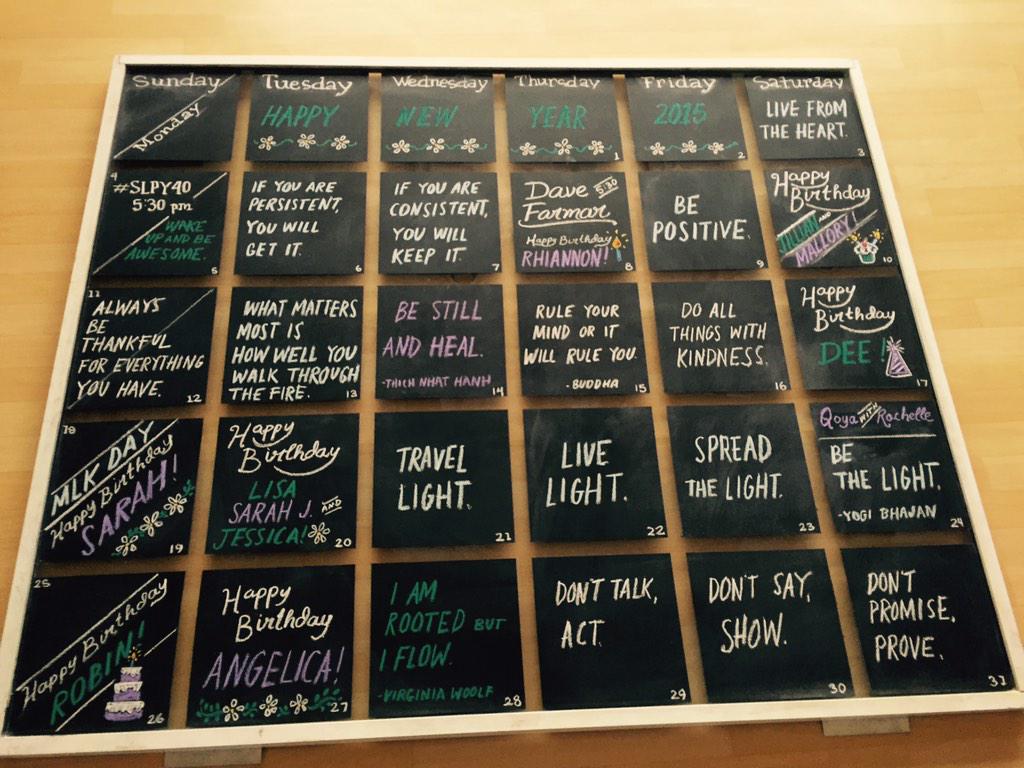 Sunday
Monday
Tuesday
HAPPY
Wednesday
NEW
Thursday
YEAR
1
Friday
2015
2
Saturday
LIVE FROM
THE HEART.
3
4
#SLPY40
5:30 pm
WAKE
UP AND BE
AWESOME.
5
IF YOU ARE
PERSISTENT,
YOU WILL
GET IT.
6
IF YOU ARE
CONSISTENT,
YOU WILL
KEEP IT.
7
Dave 5:30
Farmar
Happy Birthday
RHIANNON!
8
BE
POSITIVE.
9
Happy
Birthday
JILLIAN AND
MALLORY!
10
11
ALWAYS
BE
THANKFUL
FOR EVERYTHING
YOU HAVE.
12
WHAT MATTERS
MOST IS
HOW WELL YOU
WALK THROUGH
THE FIRE.
13
BE STILL
AND HEAL.
-THICH NHAT HANH
14
RULE YOUR
MIND OR IT
WILL RULE YOU.
-BUDDHA
15
DO ALL
THINGS WITH
KINDNESS.
16
Happy
Birthday
DEE!
17
18
MLK DAY
Happy Birthday
SARAH!
19
Happy
Birthday
LISA
SARAH J. AND
JESSICA!
20
TRAVEL
LIGHT.
21
LIVE
LIGHT.
22
SPREAD
THE LIGHT.
23
Qoya WITH Rochelle
BE
THE LIGHT.
-YOGI BHAJAN
24
25
Happy Birthday
ROBIN!
26
Happy
Birthday
ANGELICA!
27
I AM
ROOTED BUT
I FLOW.
-VIRGINIA WOOLF
28
DON'T TALK,
ACT.
29
DON'T SAY,
SHOW.
30
DON'T
PROMISE,
PROVE.
31